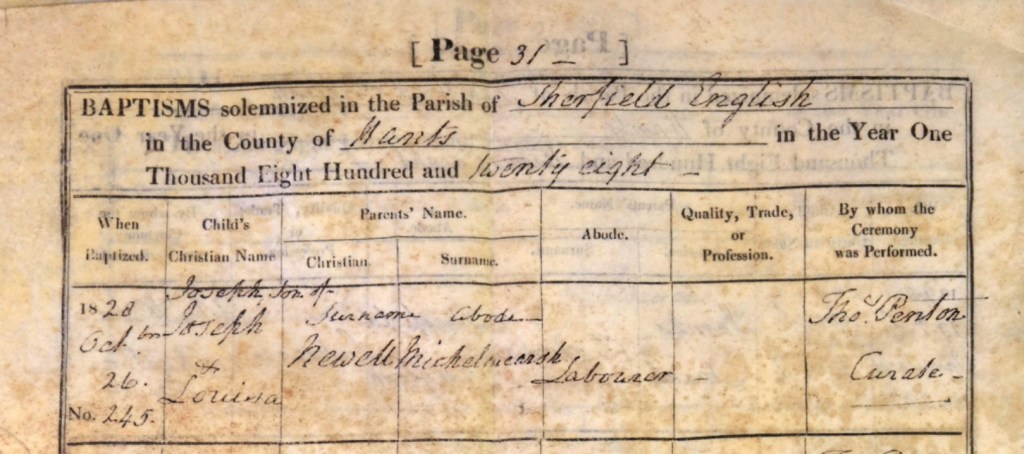 [ Page 31 ]
BAPTISMS solemnized in the Parish of Sherfield English
in the County of Hants in the Year One
Thousand Eight Hundred and twenty eight
When Baptized.
Child's Christian Name
Parents' Name.
Christian.
Surname.
Abode.
Quality, Trade, or Profession.
By whom the Ceremony was Performed.
1828
Octbr
26.
No. 245.
Joseph son of
Joseph
&
Louisa
Surname Abode
Newell Michelmearsh
Labourer
Thos. Penton
Curate